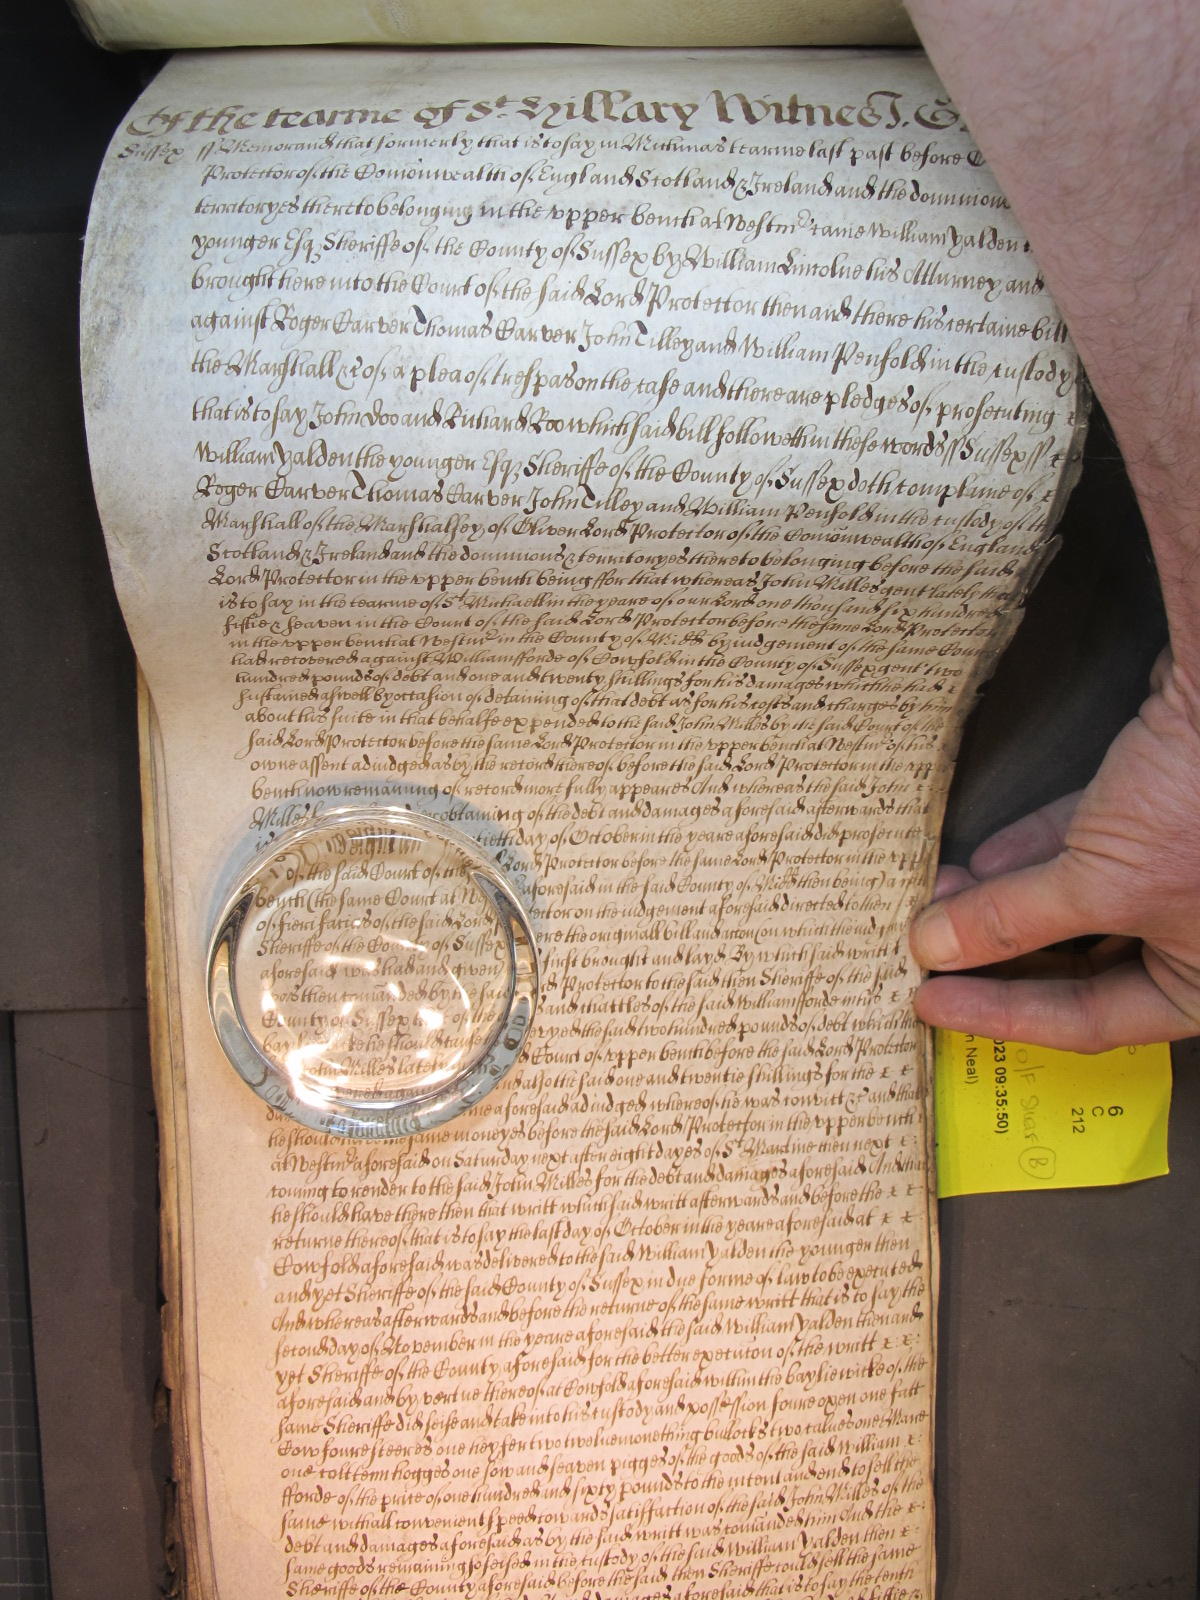 Of the tearme of St. Hillary Witnes J. G
Sussex ss Memorand that formerly that is to say in Michmas tearme last past before O
Protector of the Comonwealth of England Scotland & Ireland and the dominions
territoryes thereto belonging in the upper bench at Westmr came William Yalden t
younger Esq Sheriffe of the County of Sussex by William Lincolne his Atturney and
brought here into the Court of the said Lord Protector then and there his certaine bill
against Roger Carver Thomas Carver John Tilley and William Penfold in the custody
the Marshall &c of a plea of trespas on the case and there are pledges of prosecuting
that is to say John Doo and Richard Roo which said bill followeth in these words ss Sussex ss
William Yalden the younger Esq Sheriffe of the County of Sussex doth complaine of
Roger Carver Thomas Carver John Tilley and William Penfold in the custody of the
Marshall of the Marshalsey of Oliver Lord Protector of the Comonwealth of England
Scotland & Ireland and the dominions & territoryes thereto belonging before the said
Lord Protector in the upper bench being ffor that whereas John Milles gent lately that
is to say in the tearme of St Michaell in the yeare of our Lord one thousand six hundred
fiftie & seaven in the Court of the said Lord Protector before the same Lord Protector
in the upper bench at Westmr in the County of Midds by judgement of the same Court
had recovered against William fforde of Cowfold in the County of Sussex gent two
hundred pounds of debt and one and twenty shillings for his damages which he had
sustained aswell by occasion of detaining of that debt as for his costs and charges by him
about his suite in that behalfe expended to the said John Milles by the said Court of the
said Lord Protector before the same Lord Protector in the upper bench at Westmr of his
owne assent adjudged as by the record thereof before the said Lord Protector in the upper
bench now remaining of record more fully appeares And whereas the said John
Milles obtaining of the debt and damages aforesaid afterwards that
day of October in the yeare aforesaid did prosecute
of the said Court of the Lord Protector before the same Lord Protector in the upp
bench (the same Court at aforesaid in the said County of Midds then being) a writt
of fieri facias of the said Lord on the judgement aforesaid directed to then
Sheriffe of the County of Sussex the originall bill and accon (on which the
aforesaid was had and given first brought and layd By which said writt
then comanded by the said Protector to the said then Sheriffe of the said
County of Sussex of the and chattles of the said William fforde in his
he should cause the said two hundred pounds of debt which the
John Milles lately Court of upper bench before the said Lord Protector
and also the said one and twentie shillings for the
aforesaid adjudged whereof he was convict &c and that
he should same moneyes before the said Lord Protector in the upper bench
at Westmr aforesaid on Saturday next after eight dayes of St Martine then next
coming to render to the said John Milles for the debt and damages aforesaid And that
he should have there then that writt which said writt afterwards and before the
returne thereof that is to say the last day of October in the yeare aforesaid at
Cowfold aforesaid was delivered to the said William Yalden the younger then
and yet Sheriffe of the said County of Sussex in due forme of law to be executed
And whereas afterwards and before the returne of the same writt that is to say the
second day of November in the yeare aforesaid the said William Yalden then and
yet Sheriffe of the County aforesaid for the better execution of the writt
aforesaid and by vertue thereof at Cowfold aforesaid within the bayliewicke of the
same Sheriffe did seise and take into his custody and possession foure oxen one fatt
Cow foure steeres one heyfer two twelvemonething bullocks two calves one Mare
one colt tenn hogges one sow and seaven pigges of the goods of the said William
fforde of the price of one hundred and sixty pounds to the intent and end to sell the
same with all convenient speed towards satisfaction of the said John Milles of the
debt and damages aforesaid as by the said writt was comanded him And the
same goods remaining so seised in the custody of the said William Yalden then
Sheriffe of the County aforesaid before the said then Sheriffe could sell the same
damages aforesaid that is to say the tenth
6
C
212
023 09:35:50)
n Neal)
B